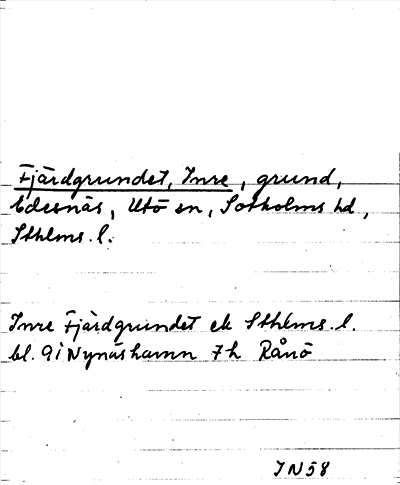 Fjärdgrundet, Inre, grund,
Edesnäs, Utö sn, Sotholms hd,
Sthlms. l.
Inre Fjärdgrundet ek Sthlms. l.
bl. 9i Nynäshamn 7h Rånö
IN58